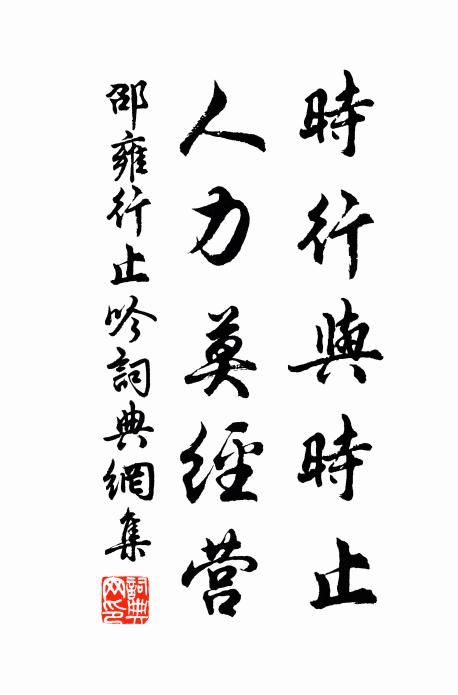 時行與時止
人力莫經营
邵雍行止吟詞典網集
詞典
网印